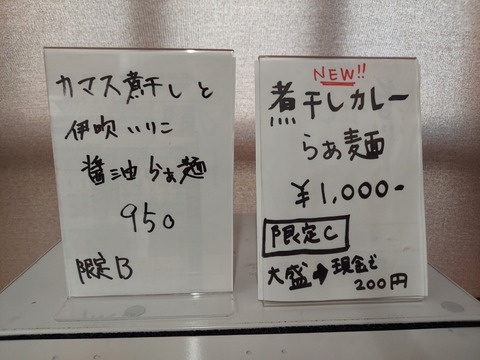 カマス煮干しと
伊吹いりこ
醤油らぁ麺
950
限定B
NEW!!
煮干しカレー
らぁ麺
¥1,000-
限定C
大盛→現金で
200円